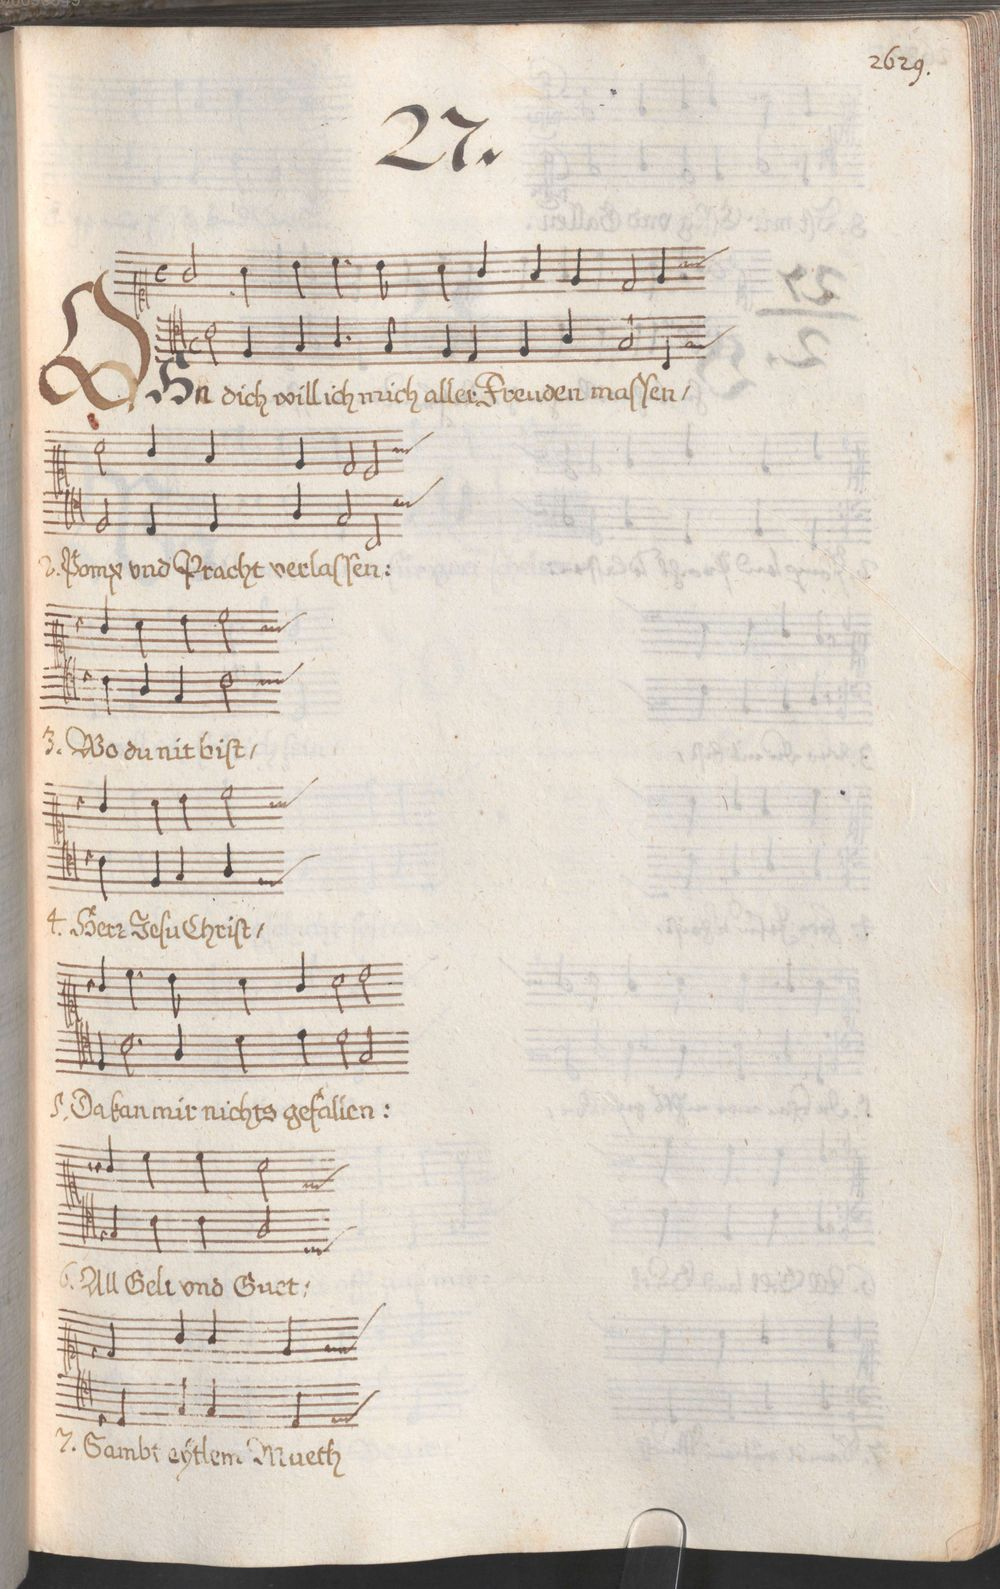 2629.
27.
OHn dich will ich mich aller Freuden massen/
2. Pomp vnd Pracht verlassen:
3. Wo du nit bist/
4. Herr Jesu Christ/
5. Da kan mir nichts gefallen:
6. All Gelt vnd Guet/
7. Sambt eÿtlem Mueth